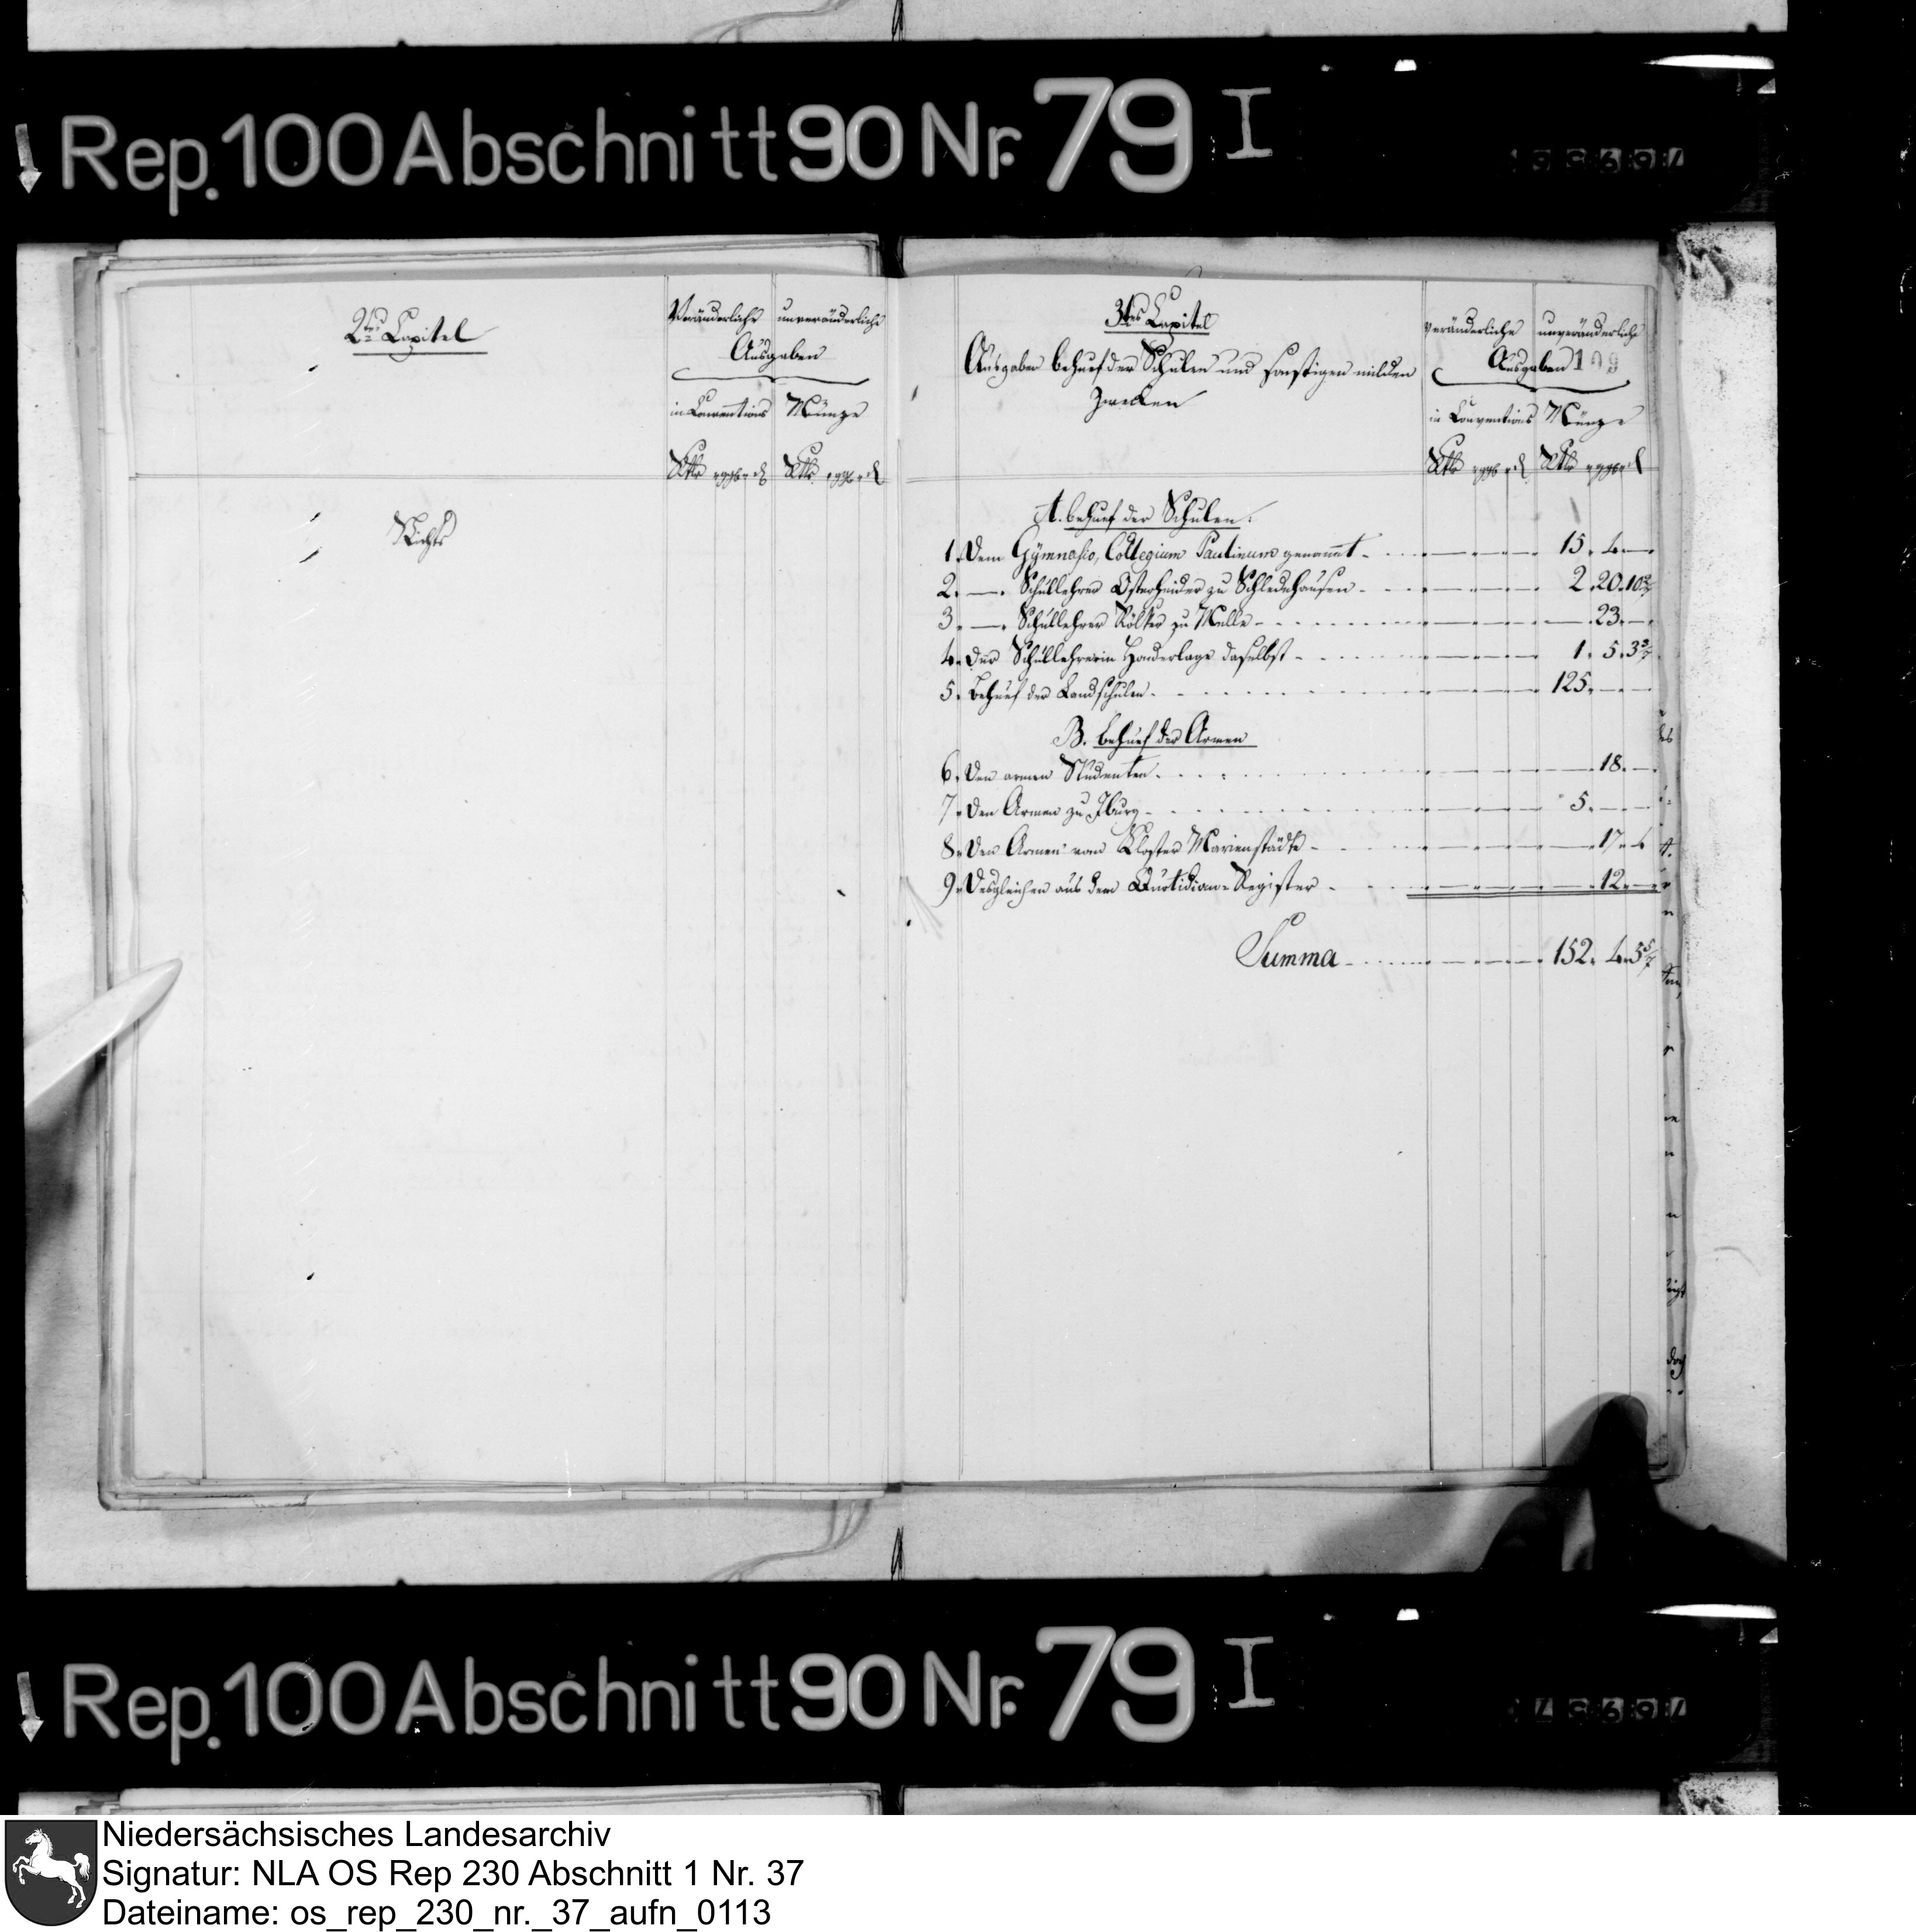 Rep. 100 Abschnitt 90 Nr. 79 I
2tes Capitel
Veränderliche unveränderliche
Ausgaben
in Conventions Münze
Rtlr ggr d Rtlr ggr d
Nichts
3tes Capitel
Ausgaben behuef der Schulen und sonstigen milden
Zwecken
veränderliche unveränderliche
Ausgaben
in Conventions Münze
Rtlr ggr d Rtlr ggr d
A. behuef der Schulen.
1. Dem Gÿmnasio, Collegium Paulinum genannt 15. 4. —
2. — Schullehrer Osterheider zu Schledehausen 2. 20. 10 2/7
3. — Schullehrer Rölker zu Melle — 23. —
4. Der Schullehrerin Handerlage daselbst 1. 5. 3 3/7
5. Behuef der Landschulen 125. — —
B. behuef der Armen
6. Den armen Studenten — 18. —
7. Den Armen zu Iburg 5. — —
8. Den Armen vom Kloster Marienstädte — 17. 4
9. Desgleichen aus dem Quotidian-Register — 12. —
Summa 152. 4. 5 5/7
Rep. 100 Abschnitt 90 Nr. 79 I
Niedersächsisches Landesarchiv
Signatur: NLA OS Rep 230 Abschnitt 1 Nr. 37
Dateiname: os_rep_230_nr._37_aufn_0113